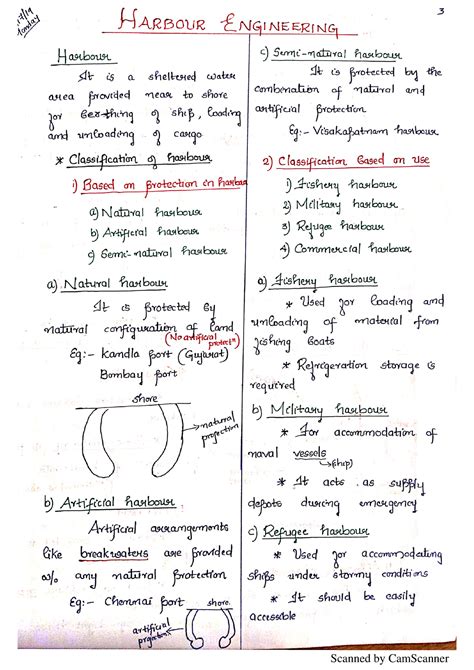 17/19
Tuesday
HARBOUR ENGINEERING
3
Harbour
It is a sheltered water
area provided near to shore
for berthing of ship, loading
and unloading of cargo
* Classification of harbour
1) Based on protection in harbour
a) Natural harbour
b) Artificial harbour
c) Semi-natural harbour
a) Natural harbour
It is protected by
natural configuration of land
(No artificial
protectn)
Eg:- Kandla port (Gujurat)
Bombay port
shore
natural
projection
b) Artificial harbour
Artificial arrangements
like breakwaters are provided
w/o any natural protection
Eg:- Chennai port
shore
artificial
c) Semi-natural harbour
It is protected by the
combination of natural and
artificial protection
Eg:- Visakapatnam harbour
2) Classification based on use
1) Fishery harbour
2) Military harbour
3) Refugee harbour
4) Commercial harbour
a) Fishery harbour
* Used for loading and
unloading of material from
fishing boats
* Refrigeration storage is
required
b) Military harbour
* For accommodation of
naval vessels
(ship)
* It acts as supply
depots during emergency
c) Refugee harbour
* Used for accommodating
ships under stormy conditions
* It should be easily
accessible
Scanned by CamScanner